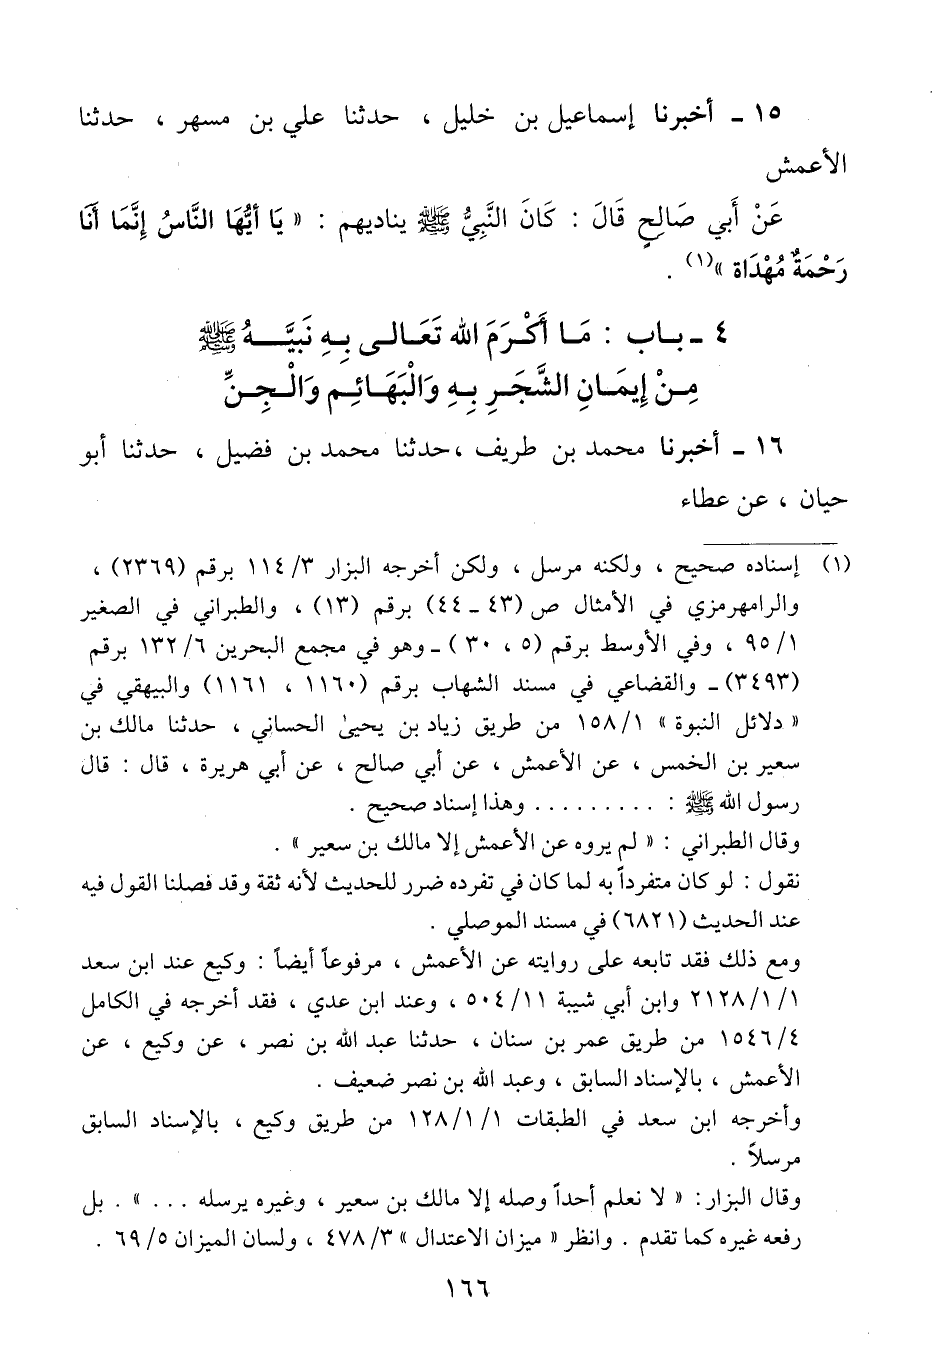 ١٥ ـ أخبرنا إسماعيل بن خليل ، حدثنا علي بن مسهر ، حدثنا
الأعمش
عَنْ أَبي صَالِحٍ قَالَ : كَانَ النَّبِيُّ ﷺ يناديهم : « يَا أَيُّهَا النَّاسُ إِنَّمَا أَنَا
رَحْمَةٌ مُهْدَاة »(١) .
٤ ـ بـاب : مَـا أَكْـرَمَ الله تَعَـالـى بِـهِ نَبيَّـــهُ ﷺ
مِـنْ إِيمَـانِ الشَّجَـرِ بِـهِ وَالْبَهَـائِـمِ وَالْـجِـنِّ
١٦ ـ أخبرنا محمد بن طريف ،حدثنا محمد بن فضيل ، حدثنا أبو
حيان ، عن عطاء
(١) إسناده صحيح ، ولكنه مرسل ، ولكن أخرجه البزار ١١٤/٣ برقم (٢٣٦٩) ،
والرامهرمزي في الأمثال ص (٤٣ ـ ٤٤) برقم (١٣) ، والطبراني في الصغير
٩٥/١ ، وفي الأوسط برقم (٥ ، ٣٠ ) ـ وهو في مجمع البحرين ١٣٢/٦ برقم
(٣٤٩٣) ـ والقضاعي في مسند الشهاب برقم (١١٦٠ ، ١١٦١) والبيهقي في
« دلائل النبوة » ١٥٨/١ من طريق زياد بن يحيىٰ الحساني ، حدثنا مالك بن
سعير بن الخمس ، عن الأعمش ، عن أبي صالح ، عن أبي هريرة ، قال : قال
رسول الله ﷺ : ......... وهذا إسناد صحيح .
وقال الطبراني : « لم يروه عن الأعمش إلا مالك بن سعير » .
نقول : لو كان متفرداً به لما كان في تفرده ضرر للحديث لأنه ثقة وقد فصلنا القول فيه
عند الحديث (٦٨٢١) في مسند الموصلي .
ومع ذلك فقد تابعه على روايته عن الأعمش ، مرفوعاً أيضاً : وكيع عند ابن سعد
٢١٢٨/١/١ وابن أبي شيبة ٥٠٤/١١ ، وعند ابن عدي ، فقد أخرجه في الكامل
١٥٤٦/٤ من طريق عمر بن سنان ، حدثنا عبد الله بن نصر ، عن وكيع ، عن
الأعمش ، بالإسناد السابق ، وعبد الله بن نصر ضعيف .
وأخرجه ابن سعد في الطبقات ١٢٨/١/١ من طريق وكيع ، بالإسناد السابق
مرسلاً .
وقال البزار: « لا نعلم أحداً وصله إلا مالك بن سعير ، وغيره يرسله ... » . بل
رفعه غيره كما تقدم . وانظر « ميزان الاعتدال » ٤٧٨/٣ ، ولسان الميزان ٦٩/٥ .
١٦٦